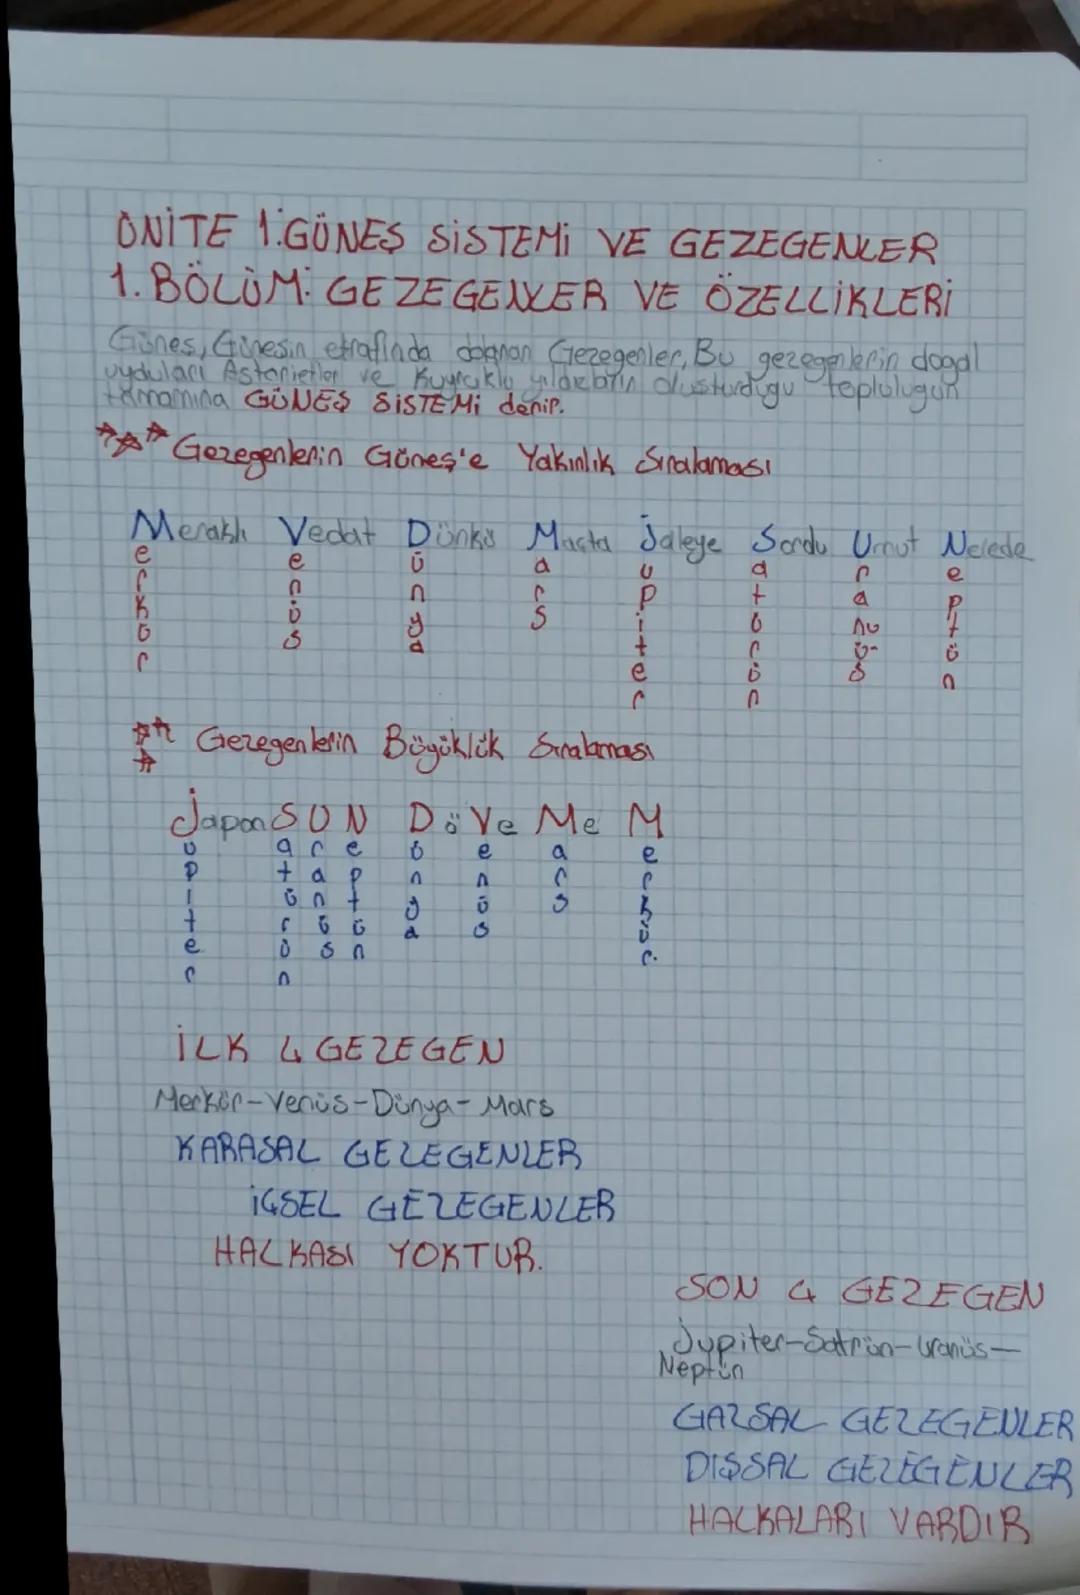 ÜNİTE 1:GÜNEŞ SİSTEMİ VE GEZEGENLER
1.BÖLÜM: GEZEGENLER VE ÖZELLİKLERİ
Güneş, Günesin etrafında dolanan Gezegenler, Bu gezegenlerin dogal
uyduları Astorietler ve Kuyruklu yıldızların oluşturduğu toplulugun
tamamına GÜNEŞ SİSTEMİ denir.
Gezegenlerin Güneş'e Yakınlık Sıralaması
Meraklı Vedat Dünkü Maçta Jaleye Sordu Umut Nerede
Merkür Venüs Dünya Mars Jupiter Satürün Uranüs Neptün
Gezegenlerin Büyüklük Sıralaması
Japon SUN DöVe Me M
Jupiter Satürün Uranüs Neptün Dünya Venüs Mars Merkür
İLK 4 GEZEGEN
Merkür-Venüs-Dünya-Mars
KARASAL GEZEGENLER
İÇSEL GEZEGENLER
HALKASI YOKTUR.
SON 4 GEZEGEN
Jupiter-Satrün-Uranüs-
Neptün
GAZSAL GEZEGENLER
DIŞSAL GEZEGENLER
HALKALARI VARDIR